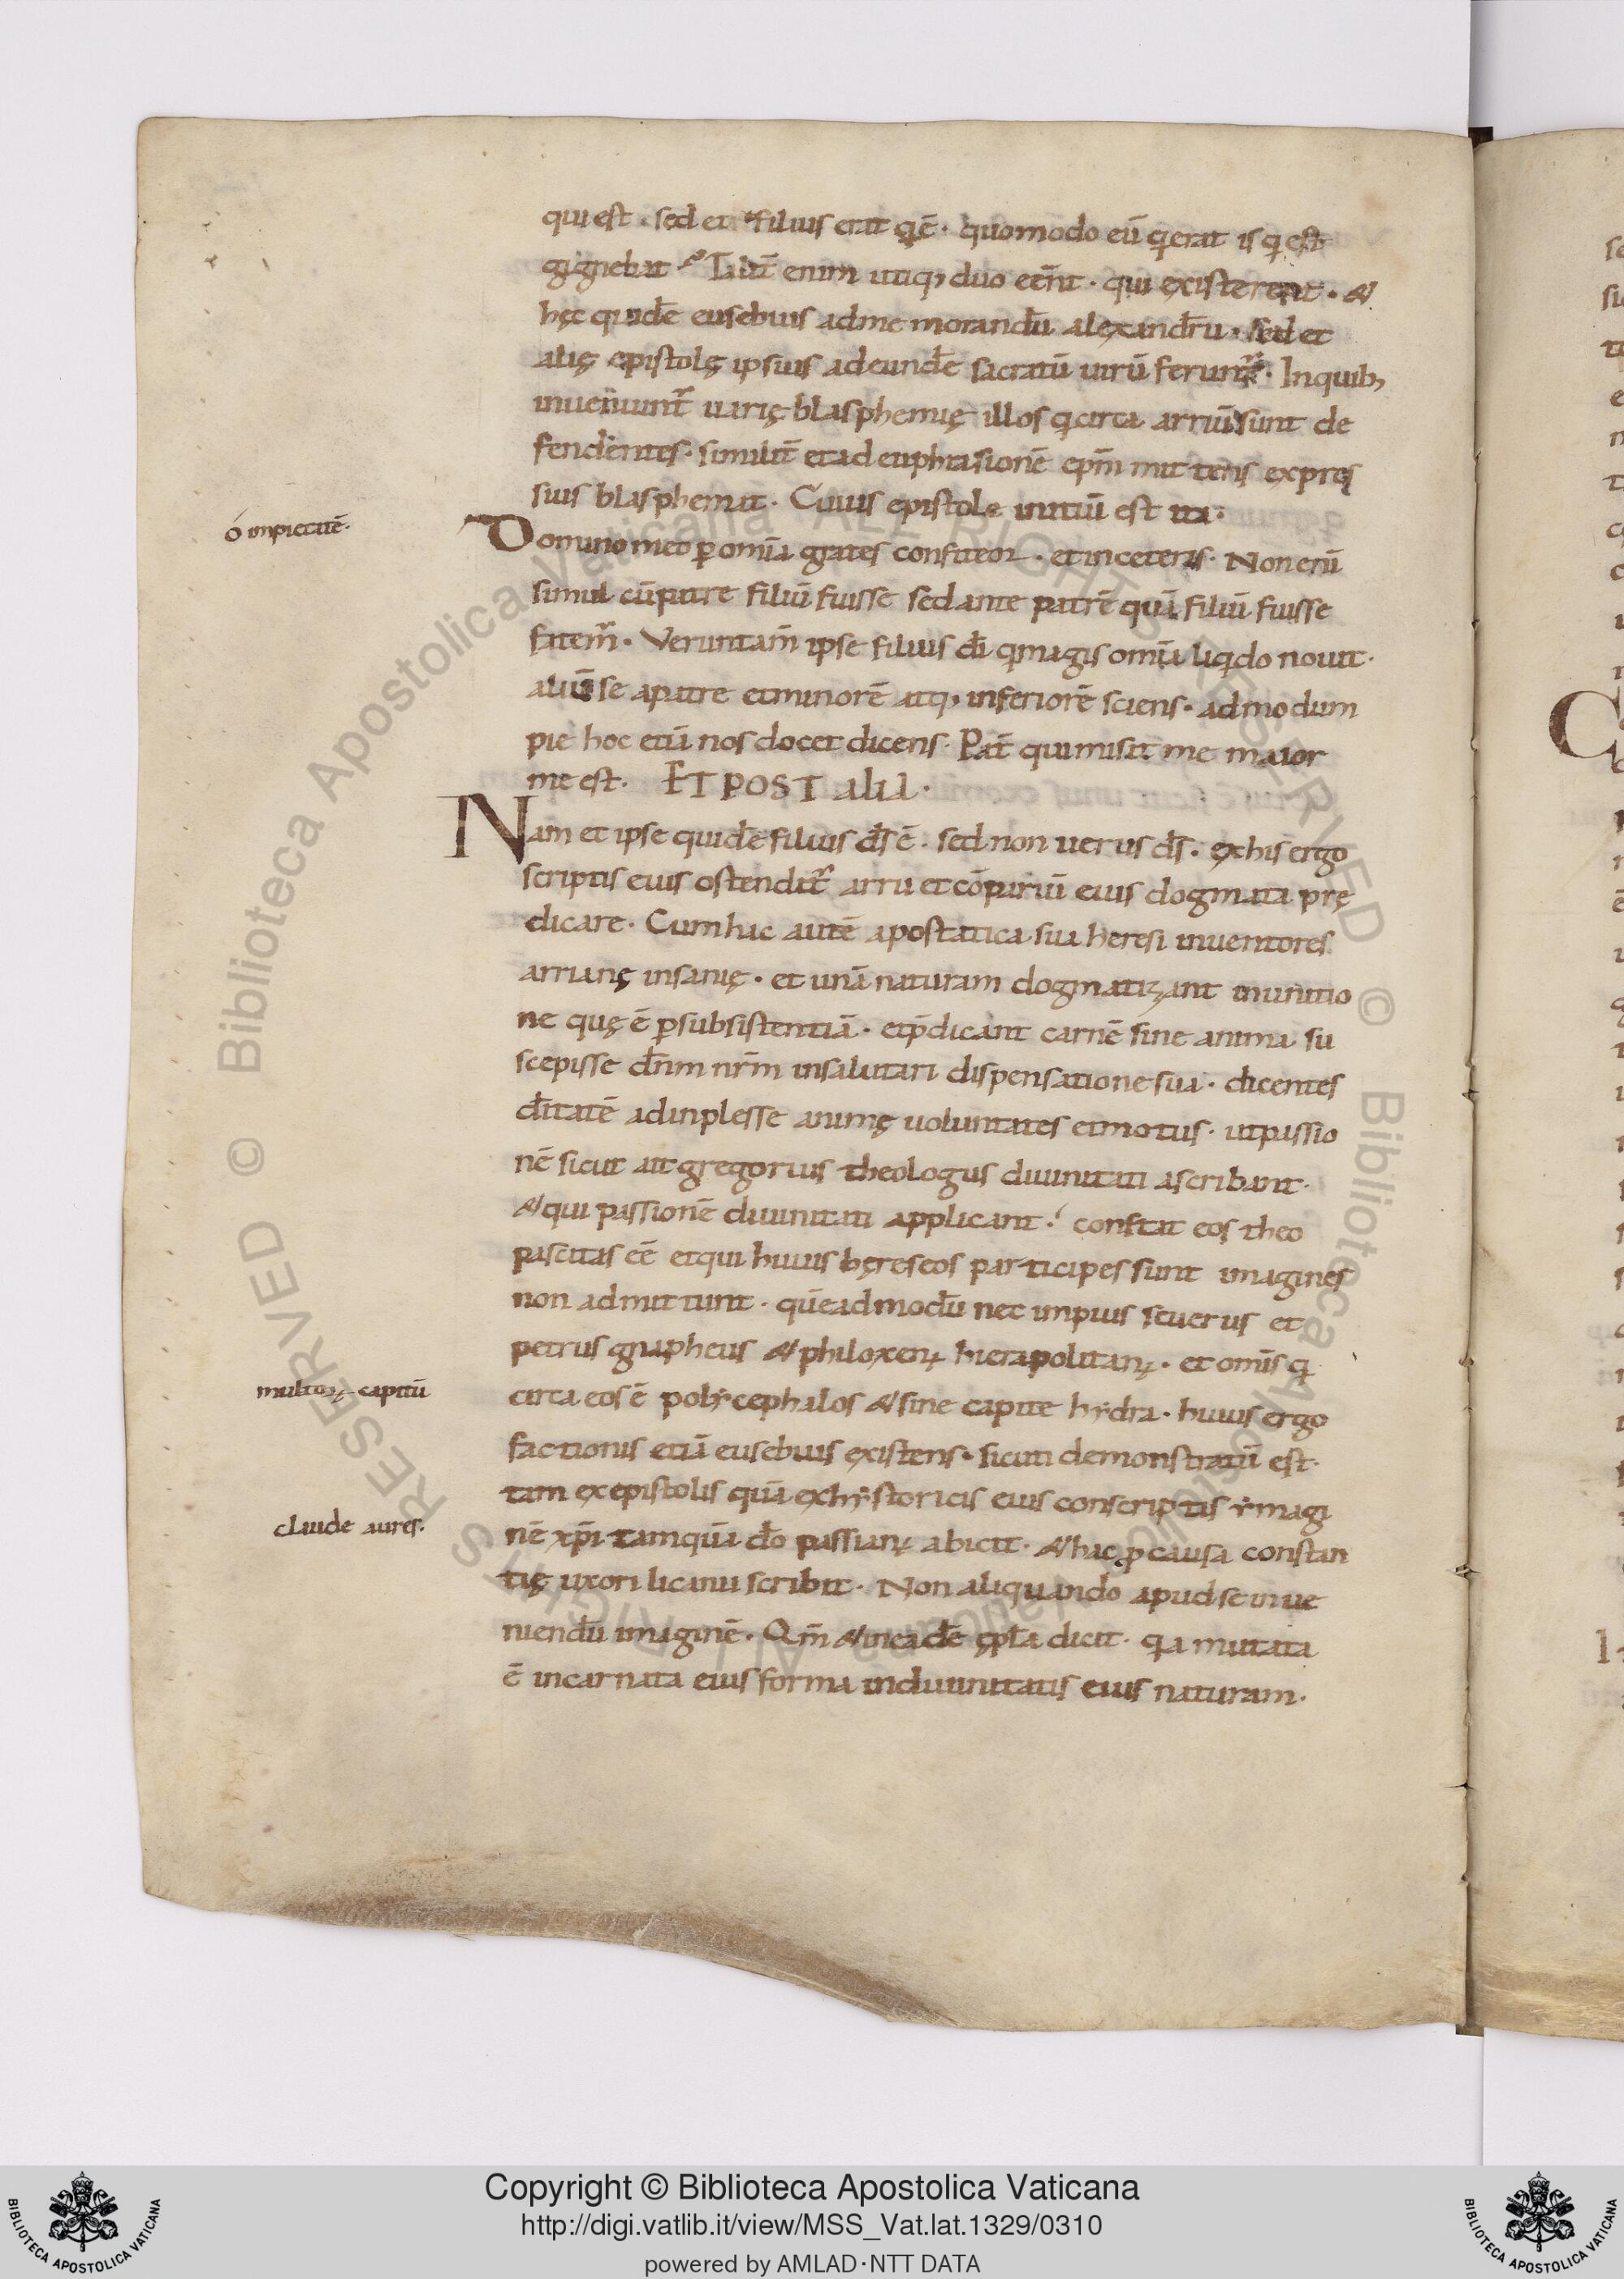 qui est · sed et filius erat q̄ ē · quomodo eū q̄ erat is q̄ est
gignebat Talit̄ enim utiq; duo eēnt · qui existerent · &
hęc quidē eusebius ad me morandū alexandrū · sed et
alię epistolę ipsius ad eundē sacratū uirū ferunt̄ · In quib;
inueniunt̄ uarię blasphemię illos q̄ circa arriū sunt de
fendentes · similit̄ et ad euphrasionē ep̄m mittens expres
sius blasphemat · Cuius epistole initiū est ita ·
ó impietatē ·
Domino meo ꝑ om̄ia grates confiteor · et in ceteris · Non enī
simul cū patre filiū fuisse sed ante patrē quā filiū fuisse
fatem̄ · Veruntam̄ ipse filius dī q̄ magis om̄ia liq̄do nouit ·
aliū se a patre et minorē atq; inferiorē sciens · admodum
pie hoc etiā nos docet dicens · Pat̄ qui misit me maior
me est · ET POST aliA ·
Nam et ipse quidē filius ds̄ ē · sed non uerus ds̄ · ex his ergo
scriptis eius ostendit̄ arrii et cōpariū eius dogmata prę
dicare · Cum hac autē apostatica sua heresi inuentores
arrianę insanię · et unā naturam dogmatizant in unitio
ne quę ē ꝑ subsistentiā · et p̄dicant carnē sine anima su
scepisse dn̄m nr̄m in salutari dispensatione sua · dicentes
dītatē adinplesse animę uoluntates et motus · ut passio
nē sicut ait gregorius theologus diuinitati ascribant ·
& qui passionē diuinitati applicant · constat eos theo
pascitas eē et qui huius hęreseos participes sunt imagines
non admittunt · quēadmodū nec impius seuerus et
petrus gnapheus & philoxenꝰ hierapolitanꝰ · et om̄is q̄
multoꝝ capitū
circa eos ē polycephalos & sine capite hydra · huius ergo
factionis etiā eusebius existens · sicuti demonstratū est ·
tam ex epistolis quā ex hystoricis eius conscriptis ymagi
claude aures ·
nē xp̄i tamquā do passianꝰ abicit · & hac ꝑ causa constan
tię uxori licinii scribit · Non aliquando apud se inue
niendū imaginē · Qm̄ & in eadē ępla dicit · q̄a mutata
ē incarnata eius forma in diuinitatis eius naturam ·
Copyright © Biblioteca Apostolica Vaticana
http://digi.vatlib.it/view/MSS_Vat.lat.1329/0310
powered by AMLAD·NTT DATA
BIBLIOTECA APOSTOLICA VATICANA
BIBLIOTECA APOSTOLICA VATICANA